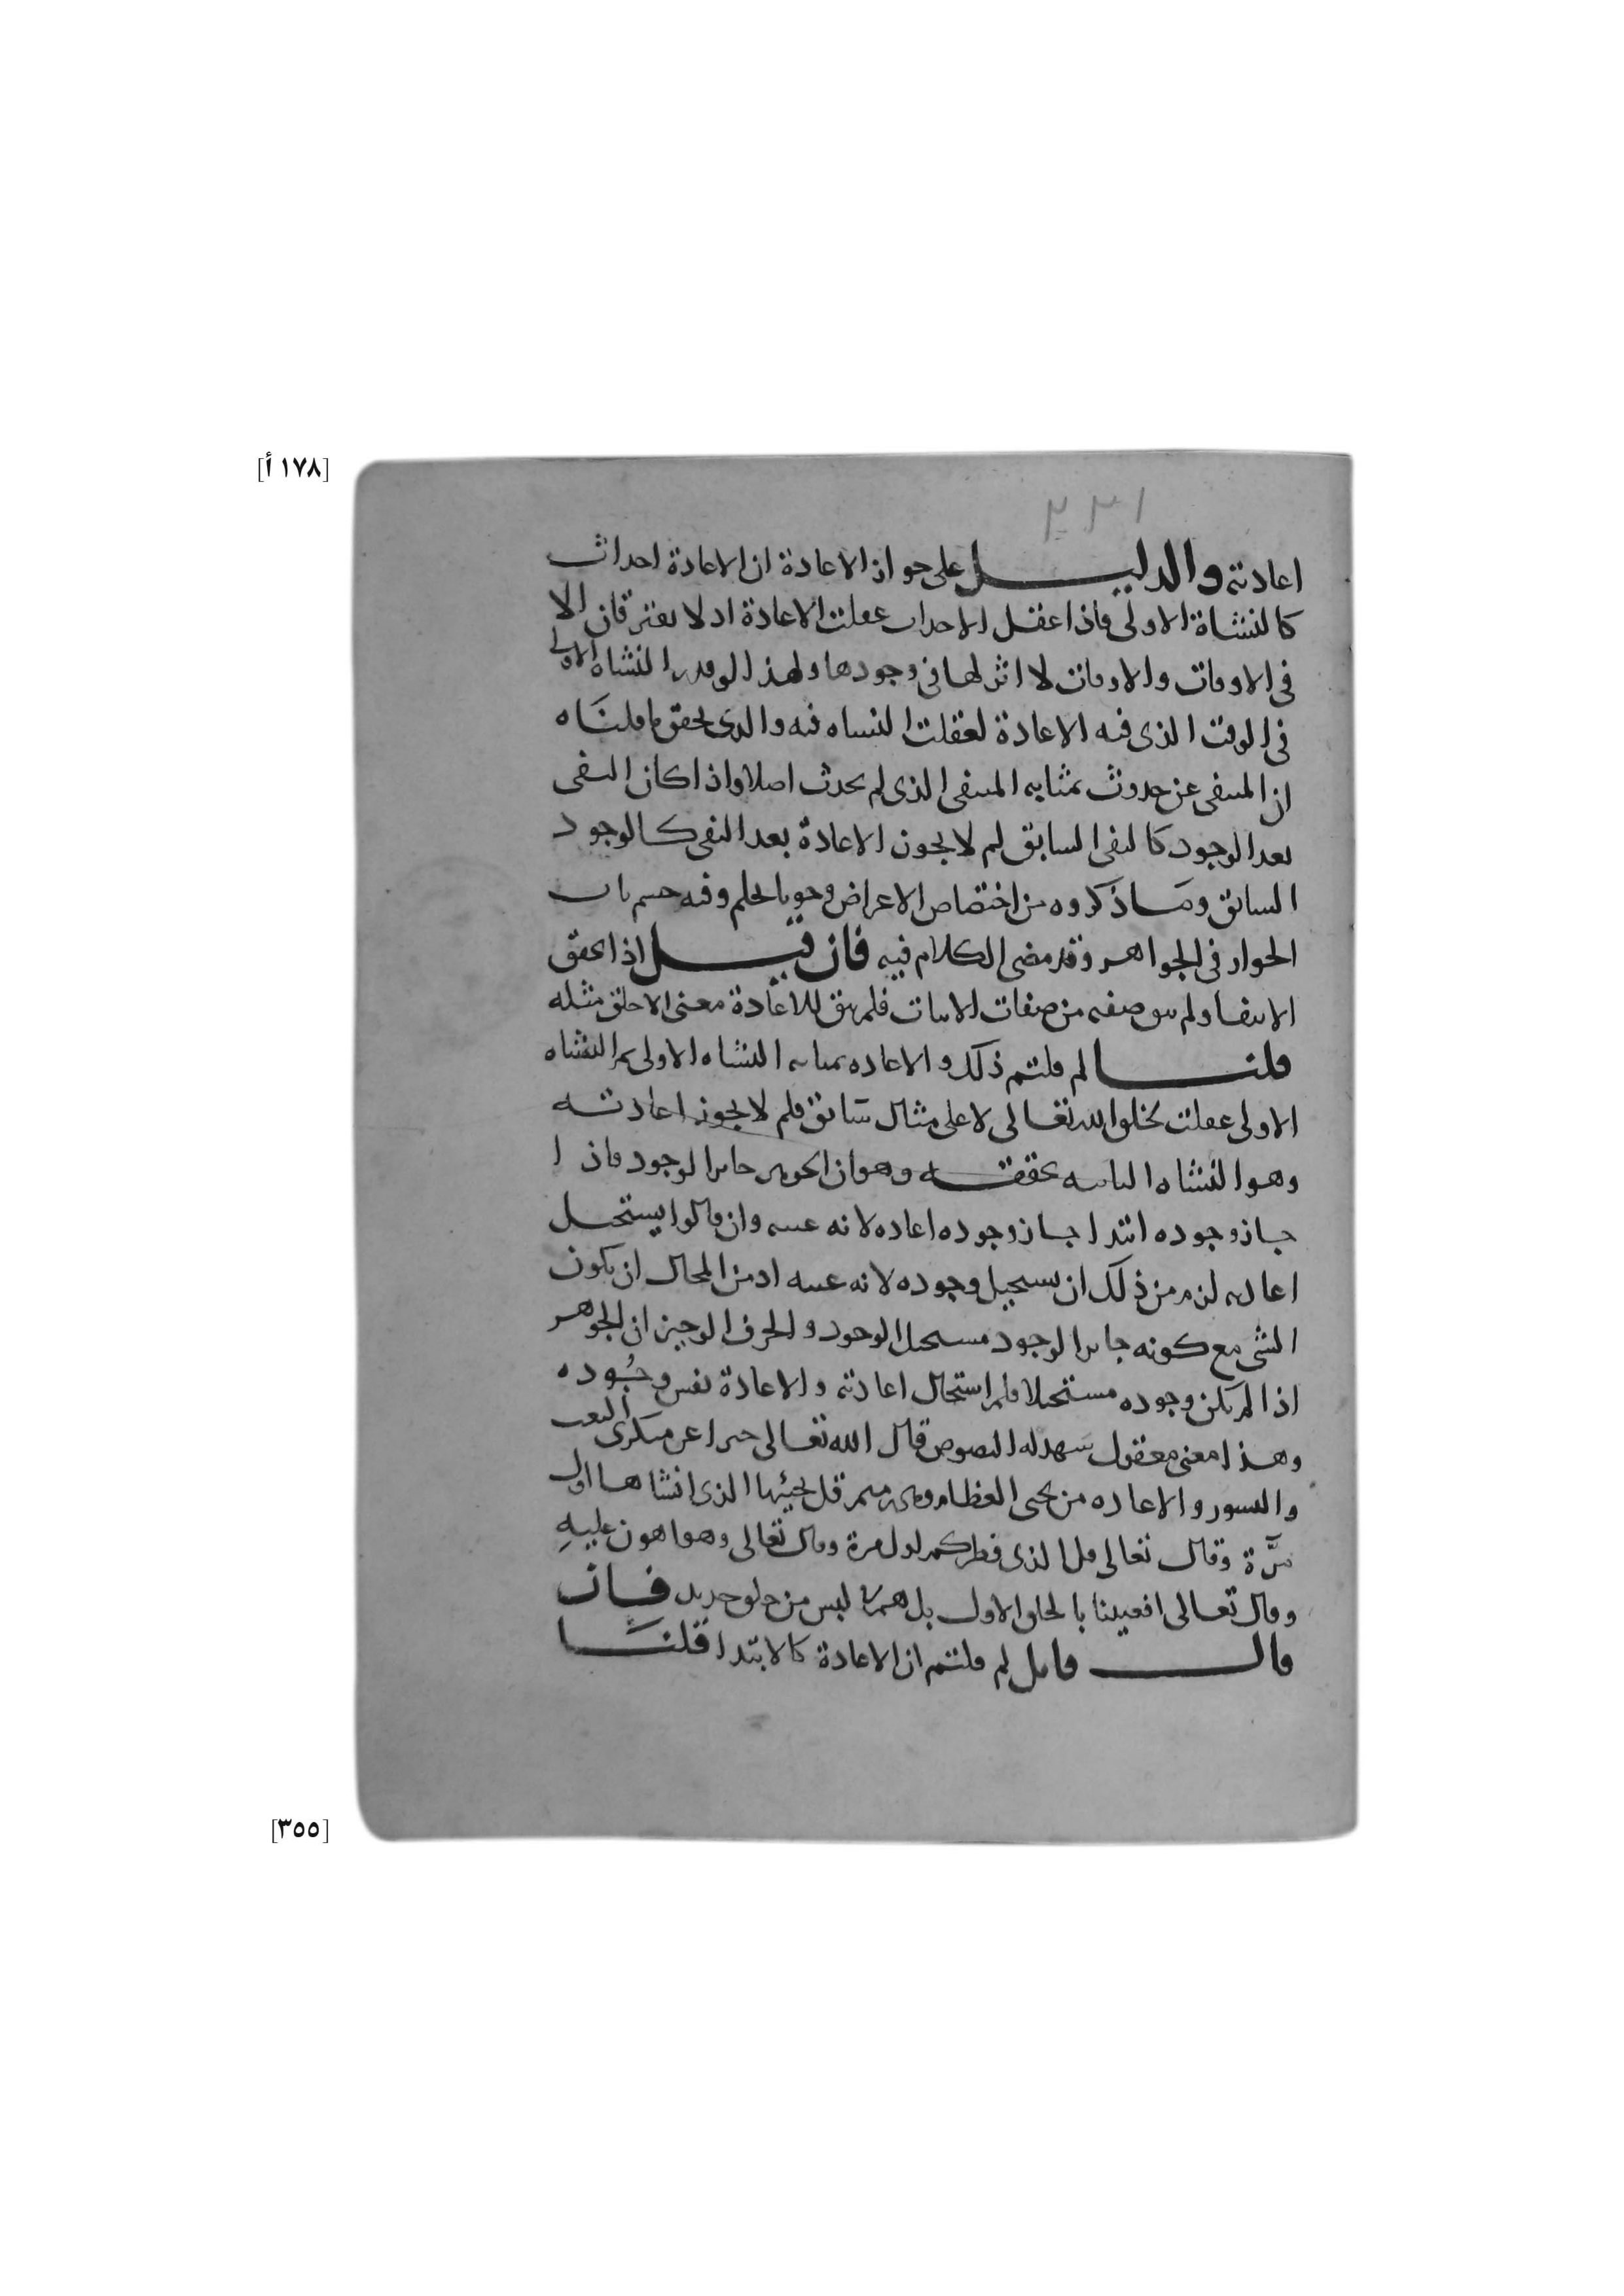 [١٧٨ أ]
٢٣١
اعادته والدليل على جواز الاعادة ان الاعادة احداث
كالنشاة الاولى فاذا عقل الاحداث عقلت الاعادة اذ لا يفترقان الا
فى الاوقات والاوقات لا اثر لها فى وجودها ولهذا لو قدر النشاة الاولى
فى الوقت الذى فيه الاعادة لعقلت النشاة فيه والذى يحقق ما قلناه
ان المنتفى عن حدوث بمثابه المنتفى الذى لم يحدث اصلا واذا كان النفى
بعد الوجود كالنفى السابق لم لا يجوز الاعادة بعد النفى كالوجود
السابق وما ذكروه من اختصاص الاعراض وجوبا وفيه حسم باب
الجواز فى الجواهر وقد مضى الكلام فيه فان قيل اذا تحقق
الانتفا ولم يبق صفه من صفات الاثبات فلم يبق للاعادة معنى الا خلق مثله
قلنا لم قلتم ذلك والاعاده بمثابه النشاه الاولى ثم النشاه
الاولى عقلت بخلق الله تعالى لا على مثال سابق فلم لا يجوز اعادته
وهو النشاه الثانيه تحققه وهو ان الجوهر جايز الوجود فاذا
جاز وجوده ابتدا جاز وجوده اعاده لانه عينه وان قالوا يستحيل
اعادته لزم من ذلك ان يستحيل وجوده لانه عينه اذ من المحال ان يكون
الشى مع كونه جايز الوجود مستحيل الوجود والحرف الوجيز ان الجوهر
اذا لم يكن وجوده مستحيلا فلم استحال اعادته والاعادة نفس وجوده
وهذا معنى معقول يشهد له النصوص قال الله تعالى خبرا عن منكرى البعث
والنشور والاعاده من يحيى العظام وهى رميم قل يحييها الذى انشاها اول
مرة وقال تعالى قل الذى فطركم اول مرة وقال تعالى وهو اهون عليه
وقال تعالى افعيينا بالخلق الاول بل هم فى لبس من خلق جديد فان
قال قايل لم قلتم ان الاعادة كالابتدا قلنا
[٣٥٥]